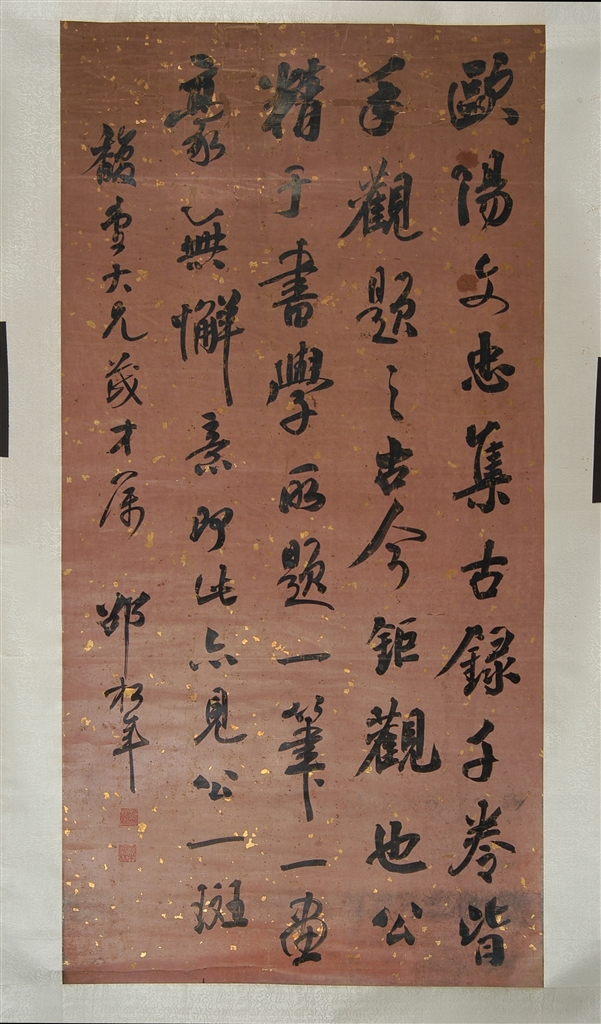 歐陽文忠集古錄千卷皆
手觀題之古今鉅觀也公
精于書學所題一筆一畫
豪無懈意即此亦見公一斑
馥堂大兄茂才属 邵松年